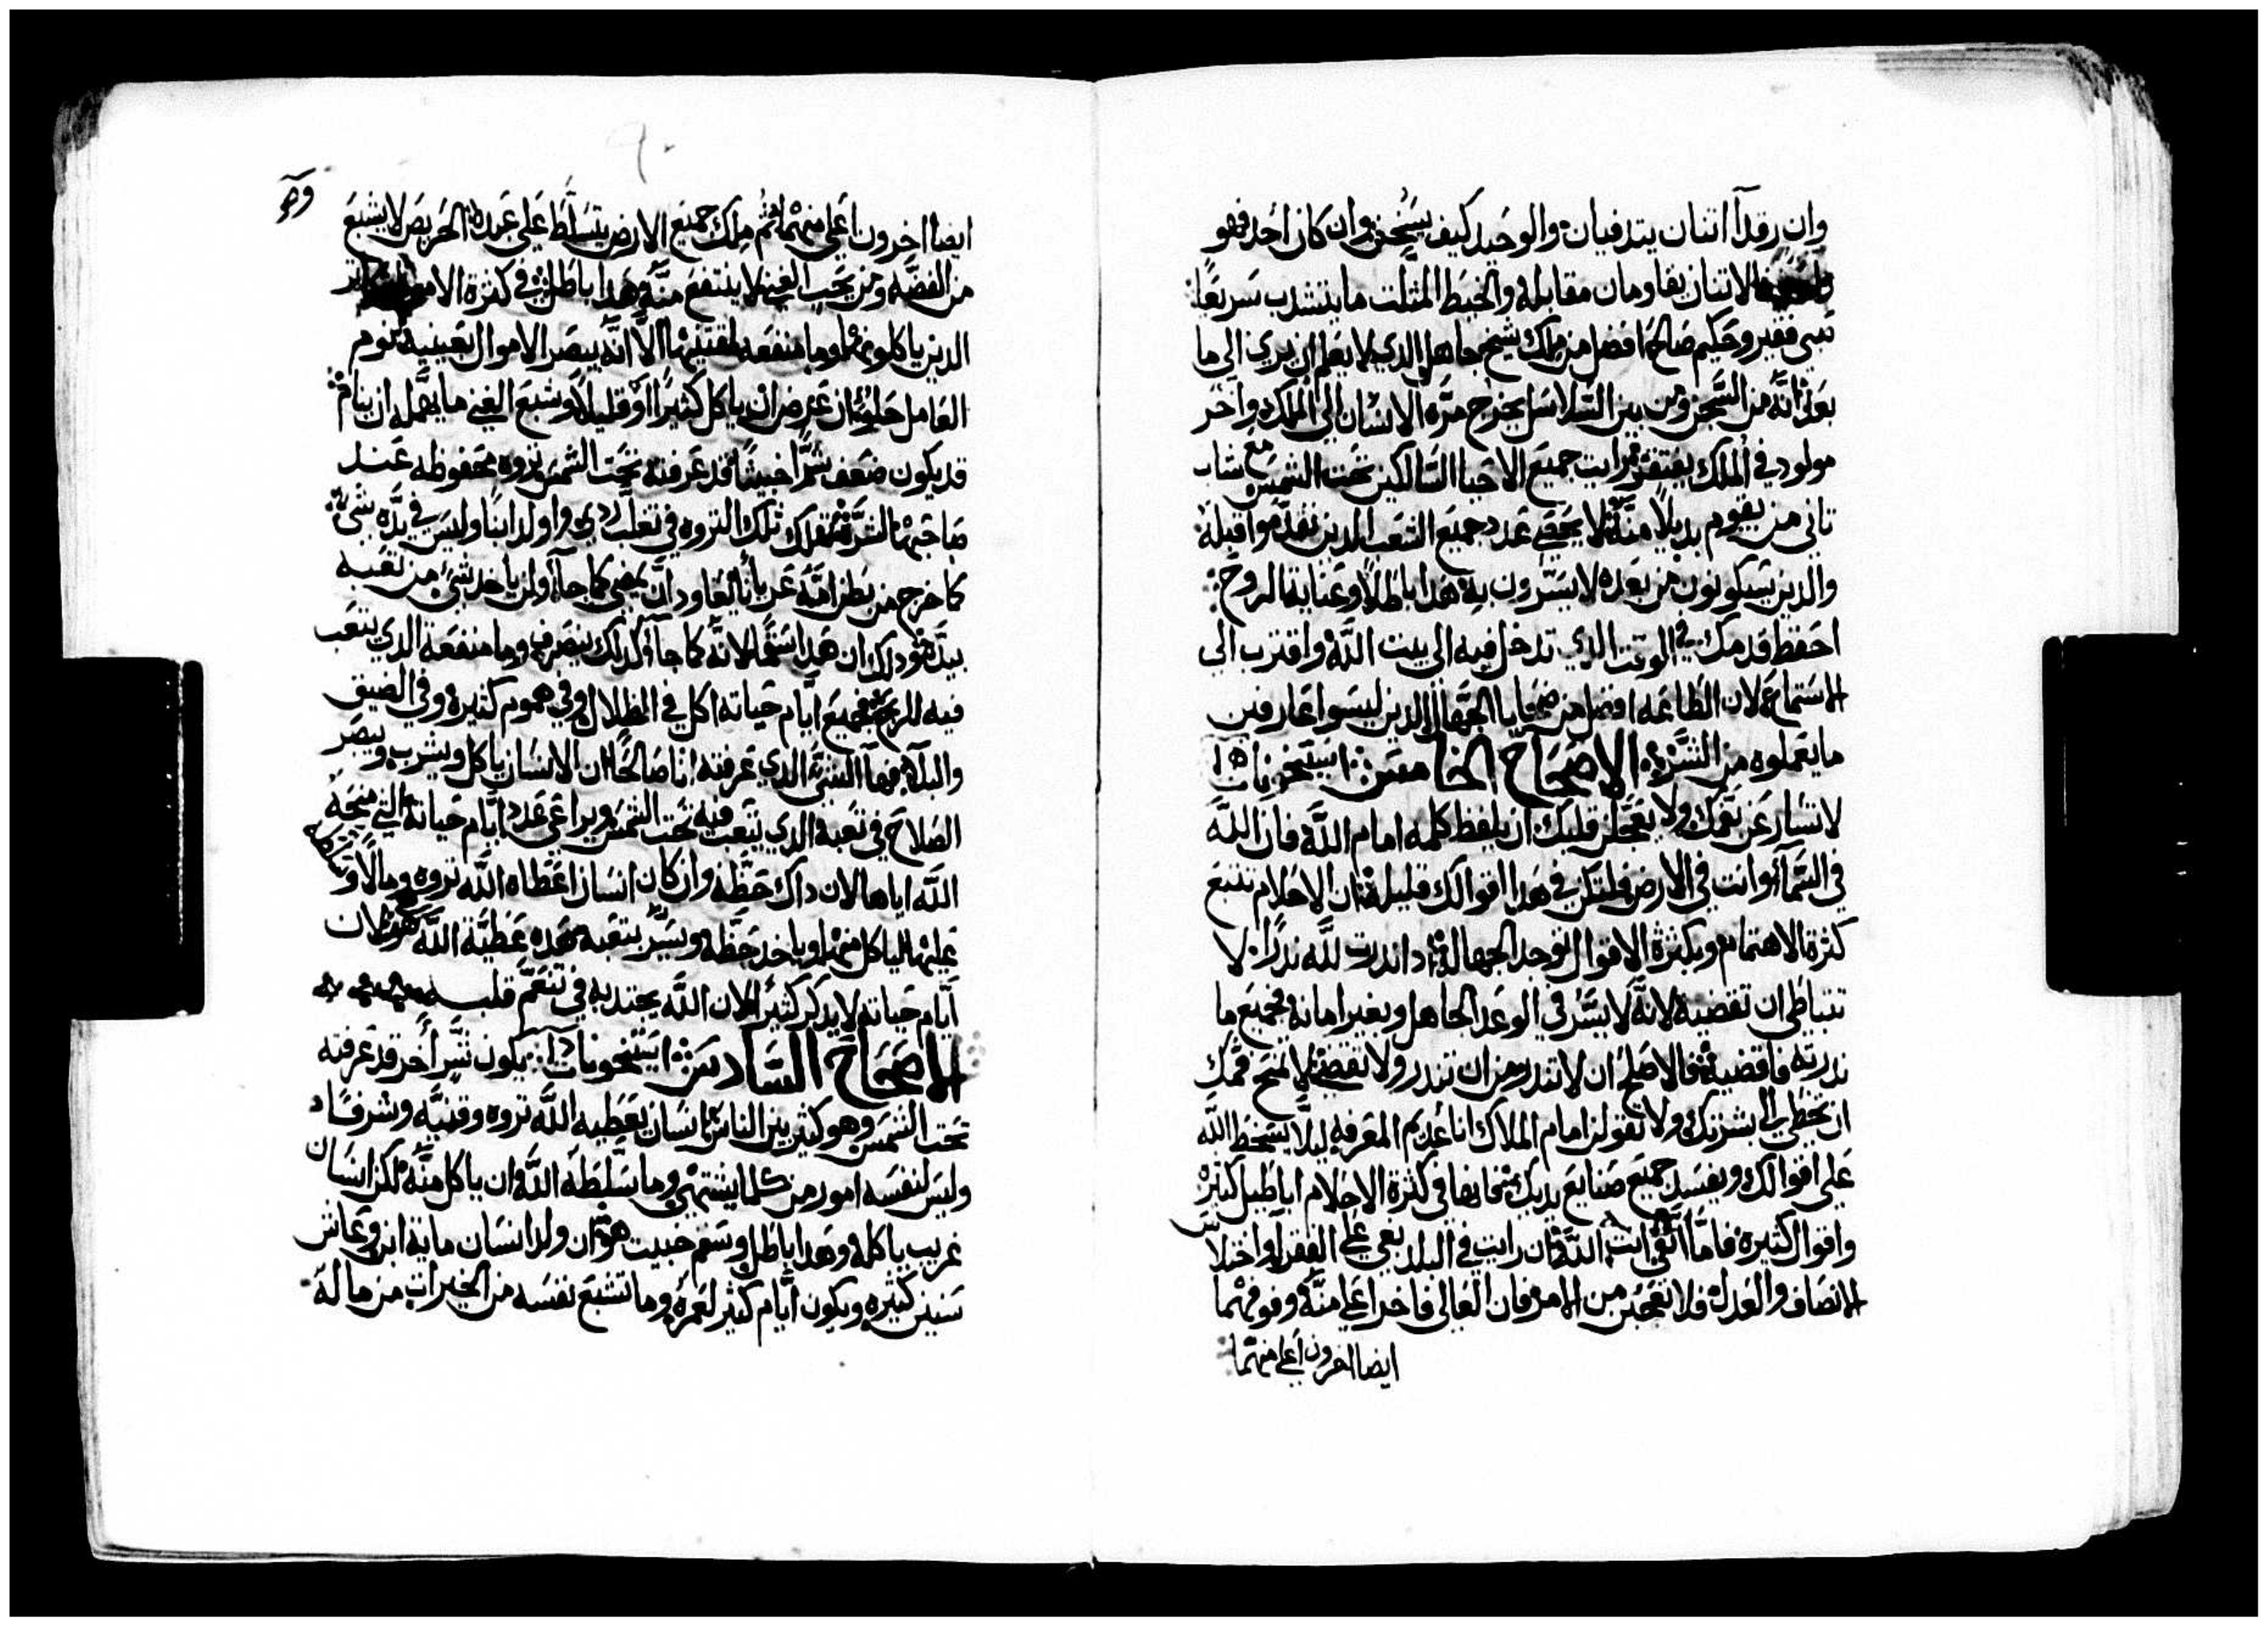 وان رقدآ اتنان يتدفيان والوحيد كيف يسخن وان كان احد فهو
الاتنان يقاومان مقابلة والخيط المتلت ما يتشدب سريعاً
صبي فقير وحكيم صالحاً افضل من ملك شيخ جاهل الدي لا يعلم ان يري الي ما
بعد لانه من السجن ومن بين السلاسل يخرج مرة الانسان الي الملك واخر
مولود في الملك يفتقر رايت جميع الاحيا السالكين تحت الشمس مع شاب
تاني من يقوم بديلاً منه لا يحصي عدد جميع الشعب الدين تقدموا قبله
والدين سيكونون من بعده لا يسرون به هدا باطلاً وعناية الروح
احفظ قدمك في الوقت الدي تدخل فيه الي بيت الله واقترب الي
الاستماع لان الطاعه افضل من ضحايا الجهال الدين ليسوا عارفين
ما يعملوه من الشر الاصحاح الخامس استيخونات
لا تسارعن بفمك ولا يعجلن قلبك ان يلفظ كلمه امام الله فان الله
في السمآ وانت في الارض فلتكن في هدا اقوالك قليلة ان الاحلام تتبع
كترة الاهتمام وبكترة الاقوال توجد الجهالة ادا ندرت لله ندراً لا
تتباطي ان تقضيه لانه لا يسر في الوعد الجاهل وبغير امانه فجميع ما
ندرته فاقضيه فالاصلح ان لا تندر من ان تندر ولا تقضي لا تمنح فمك
ان يخطي بشرتك ولا تقولن امام الملاك انا عديم المعرفه ليلا يسخط الله
علي اقوالك ويفسد جميع صنايع يديك في كترة الاحلام اباطيل كتيره
واقوال كتيره فاما انت اتقي الله ان رايت في البلد بغي علي الفقرآ واختلاس
الانصاف والعدل فلا تعجبن من الامر فان العالي فاخر اعلي منه وفوقهما
ايضا اخرون اعلي منهما
ايضا اخرون اعلي منهما تم ملك جميع الارض يتسلط علي عبده الحريص لا يشبع
من الفضه ومن يحب الغني لا ينتفع منه وهدا باطل في كترة الاموال
الدين ياكلونها وما منفعه لمقتنيها الا انه يبصر الاموال بعينيه نوم
العامل حلو ان عرض ان ياكل كتيراً او قليلاً وشبع الغني ما يهمله ان ينام
قد يكون ضعف شراً خبيتاً قد عرفته تحت الشمس تروه محفوظه عند
صاحبها لشره تهلك تلك التروه في تعب ردي واولد ابناً وليس في يده شي
كما خرج من بطن امه عرياناً يعاود ان يمضي كما جآ ولن ياخد شي من تعبه
بيده هودلك ان هدا سقماً لانه كما جآ كدلك ينصرف وما منفعة الدي يتعب
فيه للريح فجميع ايام حياته اكل في الظلال وفي هموم كتيره وفي الضيق
والبلآ فهدا الشي الدي عرفته انا صالحاً ان الانسان ياكل ويشرب ويبصر
الصلاح في تعبه الدي يتعب فيه تحت الشمس ويراعي عدد ايام حياته التي منحه
الله اياها لان داك حظه وان كان انسان اعطاه الله تروه ومالاً وسلطه
عليها لياكل منها وياخد حظه ويسر بتعبه فهده عطية الله هو ظان
ايام حياته لا يدكر كتيراً لان الله يجتدبه في تنعم قلبه
الاصحاح السادس استيخونات يكون شراً اخر قد عرفته
تحت الشمس وهو كتير بين الناس انسان يعطيه الله تروه وقنيه وشرفاً
وليس لنفسه امور من كلما يشتهي وما سلطه الله ان ياكل منه لكن انسان
غريب ياكله وهدا باطل وسقم خبيت هو ان ولد انسان ماية ابن وعاش
سنين كتيره ويكون ايام كتير لعمره وما تشبع نفسه من الخيرات من ماله